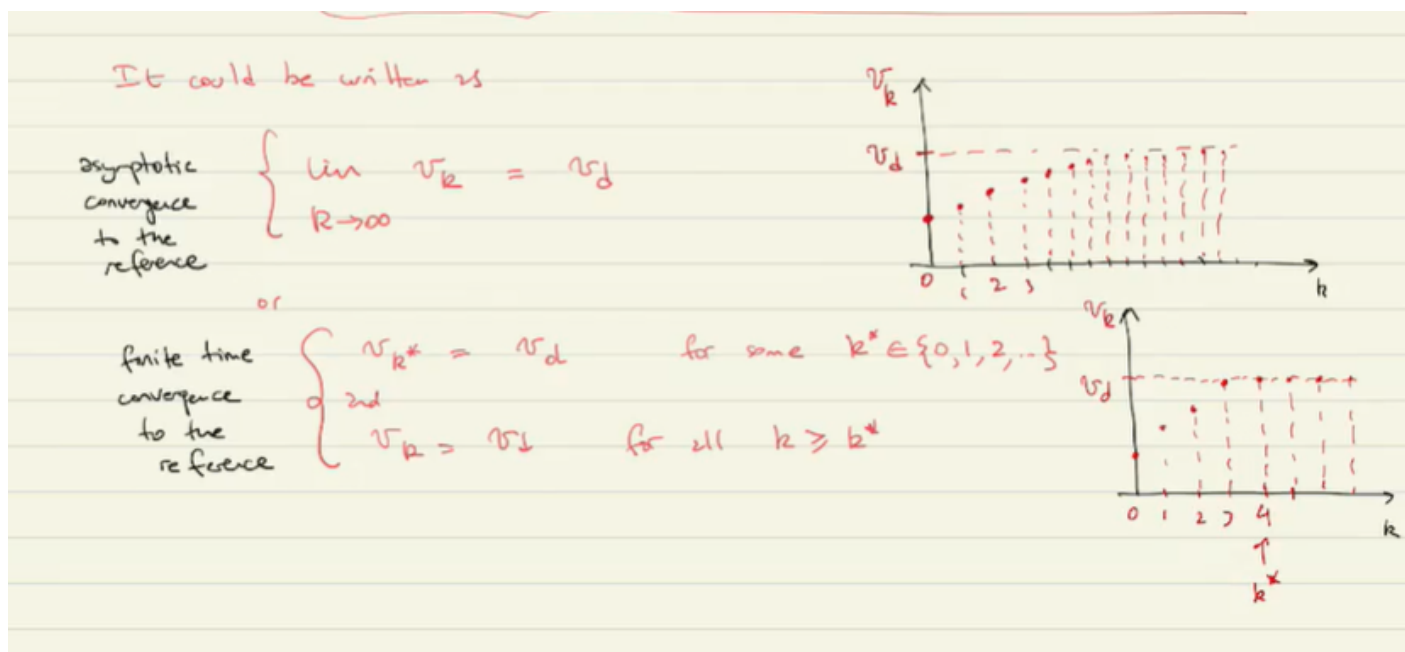 It could be written as
asymptotic
convergence
to the
reference
lim v_k = v_d
k→∞
v_k
v_d
0 1 2 3
k
or
finite time
convergence
to the
reference
v_k* = v_d for some k* ∈ {0,1,2,..}
and
v_k = v_d for all k ≥ k*
v_k
v_d
0 1 2 3 4
k
↑
k*